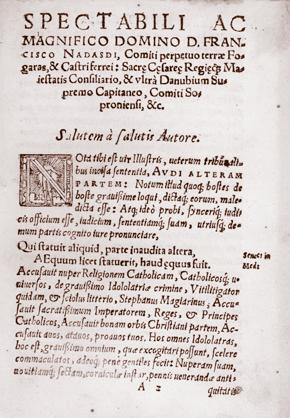 SPECTABILI AC
MAGNIFICO DOMINO D. FRAN-
CISCO NADASDI, Comiti perpetuo terræ Fo-
garas, & Castriferrei: Sacræ Cesareæ Regięq; Ma-
iestatis Consiliario, & vltrà Danubium Su-
premo Capitaneo, Comiti So-
proniensi, &c.
Salutem à salutis Autore.
NOta tibi est vir Illustris, ueterum tribunali-
bus inuisa sententia, AVDI ALTERAM
PARTEM: Notum illud quoq; hostes de
hoste grauissime loqui, dictaq; eorum, male-
dicta esse: Atq; ideò probi, synceriq; iudi-
cis officium esse, iudicium, sententiamq; suam, utriusq; de-
mum partis cognito iure pronunciare.
Qui statuit aliquid, parte inaudita altera,
Æquum licet statuerit, haud ęquus fuit.
Seneca in
Med:
Accusauit nuper Religionem Catholicam, Catholicosq; u-
niuersos, de grauissimo Idololatriæ crimine, Vitilitigator
quidam, & sciolus litterio, Stephanus Magiarinus; Accu-
sauit sacratissimum Imperatorem, Reges, & Principes
Catholicos, Accusauit bonam orbis Christiani partem, Ac-
cusauit auos, atauos, proauos tuos. Hos omnes Idololatras,
hoc est, grauissimo omnium, quæ excogitari possunt, scelere
commaculatos, adeoq; penè gentiles fecit: Nuperam suam,
nouitiamq; sectam, corniculæ instar, pennis venerandæ anti-
A 2
quitatis